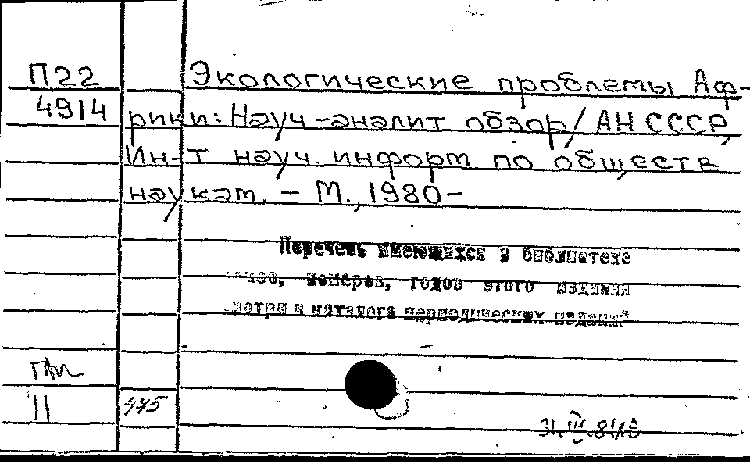 П22
4914
Экологические проблемы Аф-
рики: Науч-аналит обзор/АН СССР,
Ин-т науч. информ по обществ
наукам. - М., 1980-
Перечень имеющихся в библиотеке
номеров, годов этого издания
смотри в каталоге периодических изданий
II
485